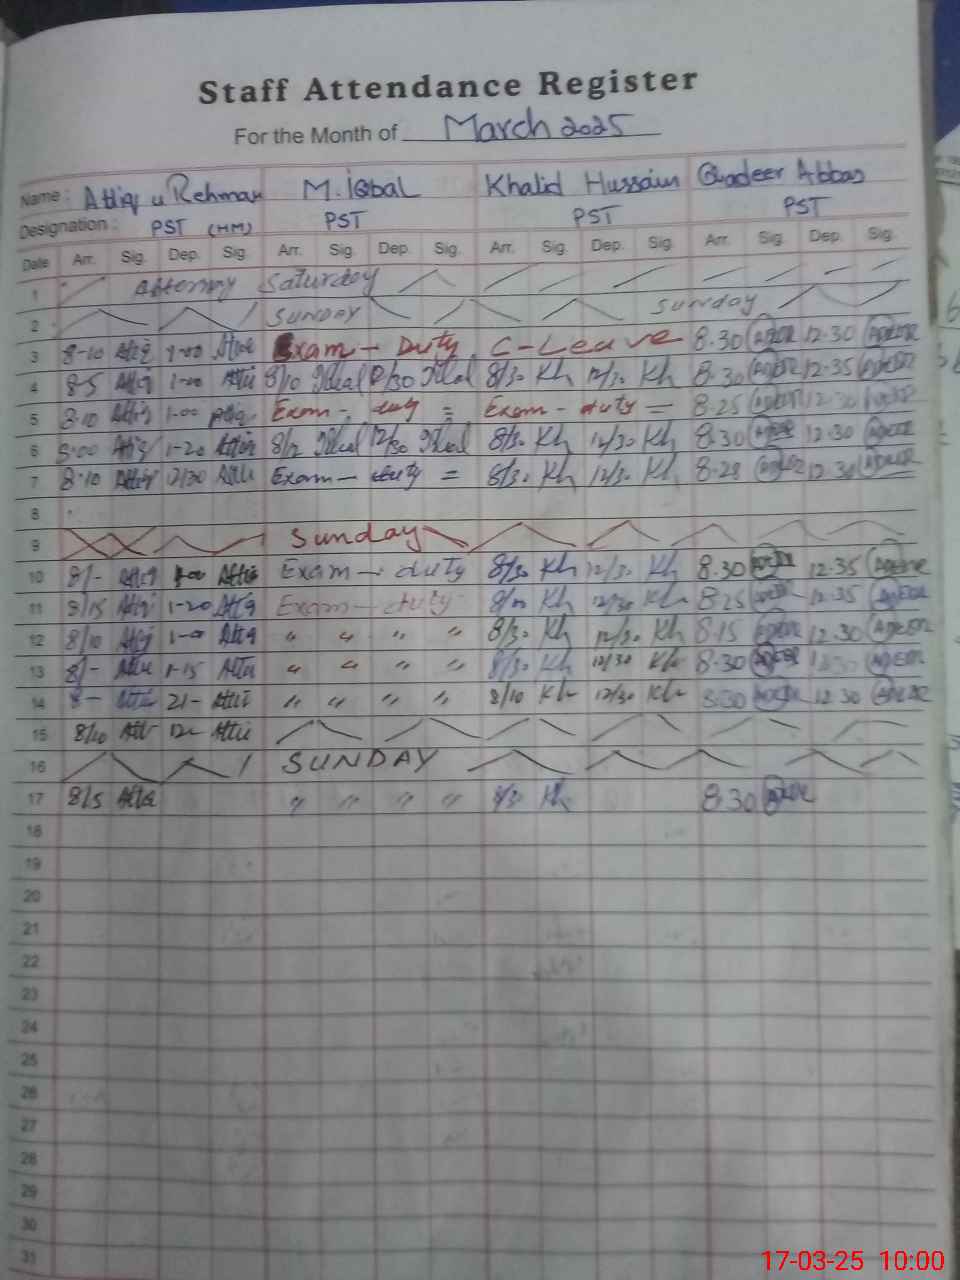 Staff Attendance Register
For the Month of March 2025
Name : Attiq u Rehman M. Iqbal Khalid Hussain Qadeer Abbas
Designation : PST (HM) PST PST PST
Date Arr. Sig. Dep. Sig. Arr. Sig. Dep. Sig. Arr. Sig. Dep. Sig. Arr. Sig. Dep. Sig.
1 Saturday
2 Sunday Sunday
3 8-10 Attiq 1-00 Attiq Exam - Duty C-Leave 8.30 12.30
4 8-5 Attiq 1-00 Attiq 8/10 8/30 Kh 12/30 Kh 8.30 12.35
5 8-10 Attiq 1-00 Attiq Exam - duty = Exam - duty = 8.25 12.30
6 8:00 Attiq 1-20 Attiq 8/12 12/30 8/30 Kh 12/30 Kh 8.30 12.30
7 8-10 Attiq 12/30 Attiq Exam - duty = 8/30 Kh 12/30 Kh 8.28 12.30
8
9 Sunday
10 8/- Attiq Attiq Exam - duty 8/30 Kh 12/30 Kh 8.30 12.35
11 8/15 Attiq 1-20 Attiq Exam - duty Kh 12/30 Kh 8.25 12.35
12 8/10 Attiq 1-0 Attiq " " " " 8/30 Kh 12/30 Kh 8.15 12.30
13 8/- Attiq 1-15 Attiq " " " " 8/30 Kh 12/30 Kh 8.30
14 8- Attiq Attiq " " " " 8/10 Kh 12/30 Kh 8.30 12.30
15 8/10 Attiq 12- Attiq
16 SUNDAY
17 8/5 Attiq " " " " 8/30 Kh 8.30
18
19
20
21
22
23
24
25
26
27
28
29
30
31
17-03-25 10:00